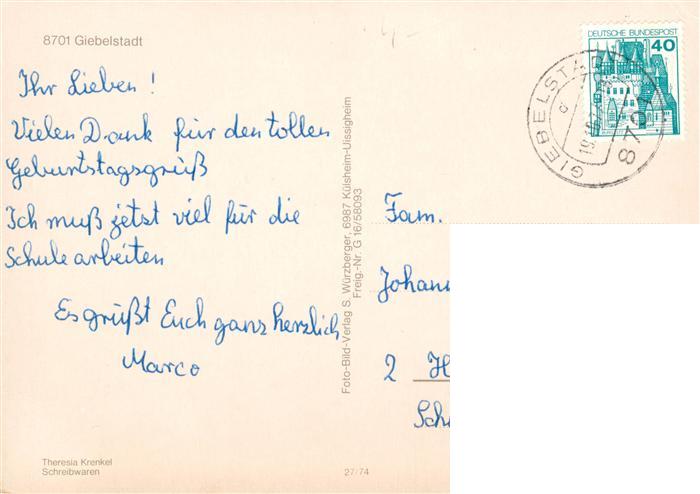 8701 Giebelstadt
Ihr Lieben !
Vielen Dank für den tollen
Geburtstagsgruß
Ich muß jetzt viel für die
Schule arbeiten
Es grüßt Euch ganz herzlich
Marco
Theresia Krenkel
Schreibwaren
27/74
Foto-Bild-Verlag S. Würzberger, 6987 Külsheim-Uissigheim
Freig.-Nr. G 16/58093
DEUTSCHE BUNDESPOST
40
GIEBELSTADT
8701
Fam.
Johann
2 H
Sch